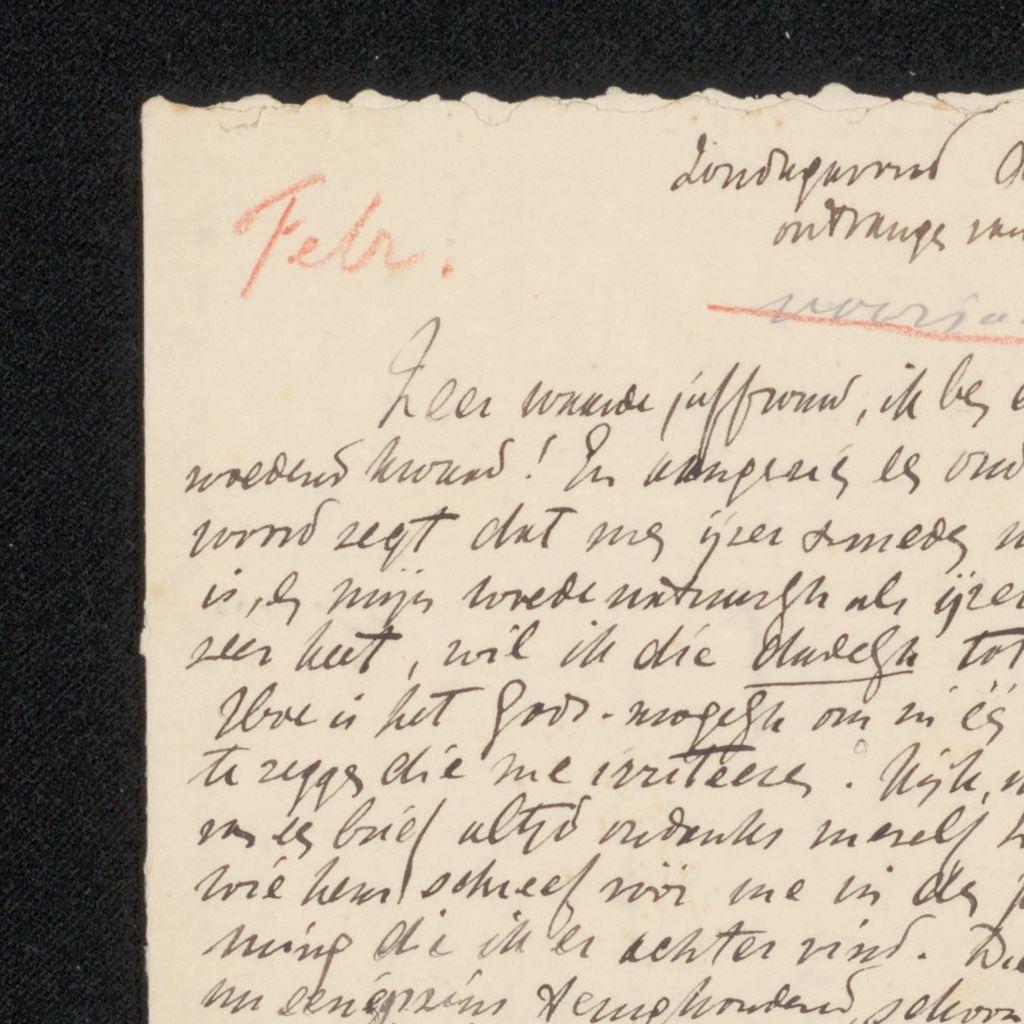 Zondagavond
ontvangst van
Febr.
voorja
Zeer waarde juffrouw, ik ben
woedend kwaad! En aangezien een
woord zegt dat men ijzer smeden
is, en mijn woede natuurlijk als ijzer
zeer heet, wil ik die dadelijk tot
Hoe is het Gods-mogelijk om in één
te zeggen die me irriteeren. Kijk,
van een brief altijd ondanks mezelf
wie hem schreef vóór me in de
ming die ik er achter vind.
nu eenigszins terughoudend, schoon